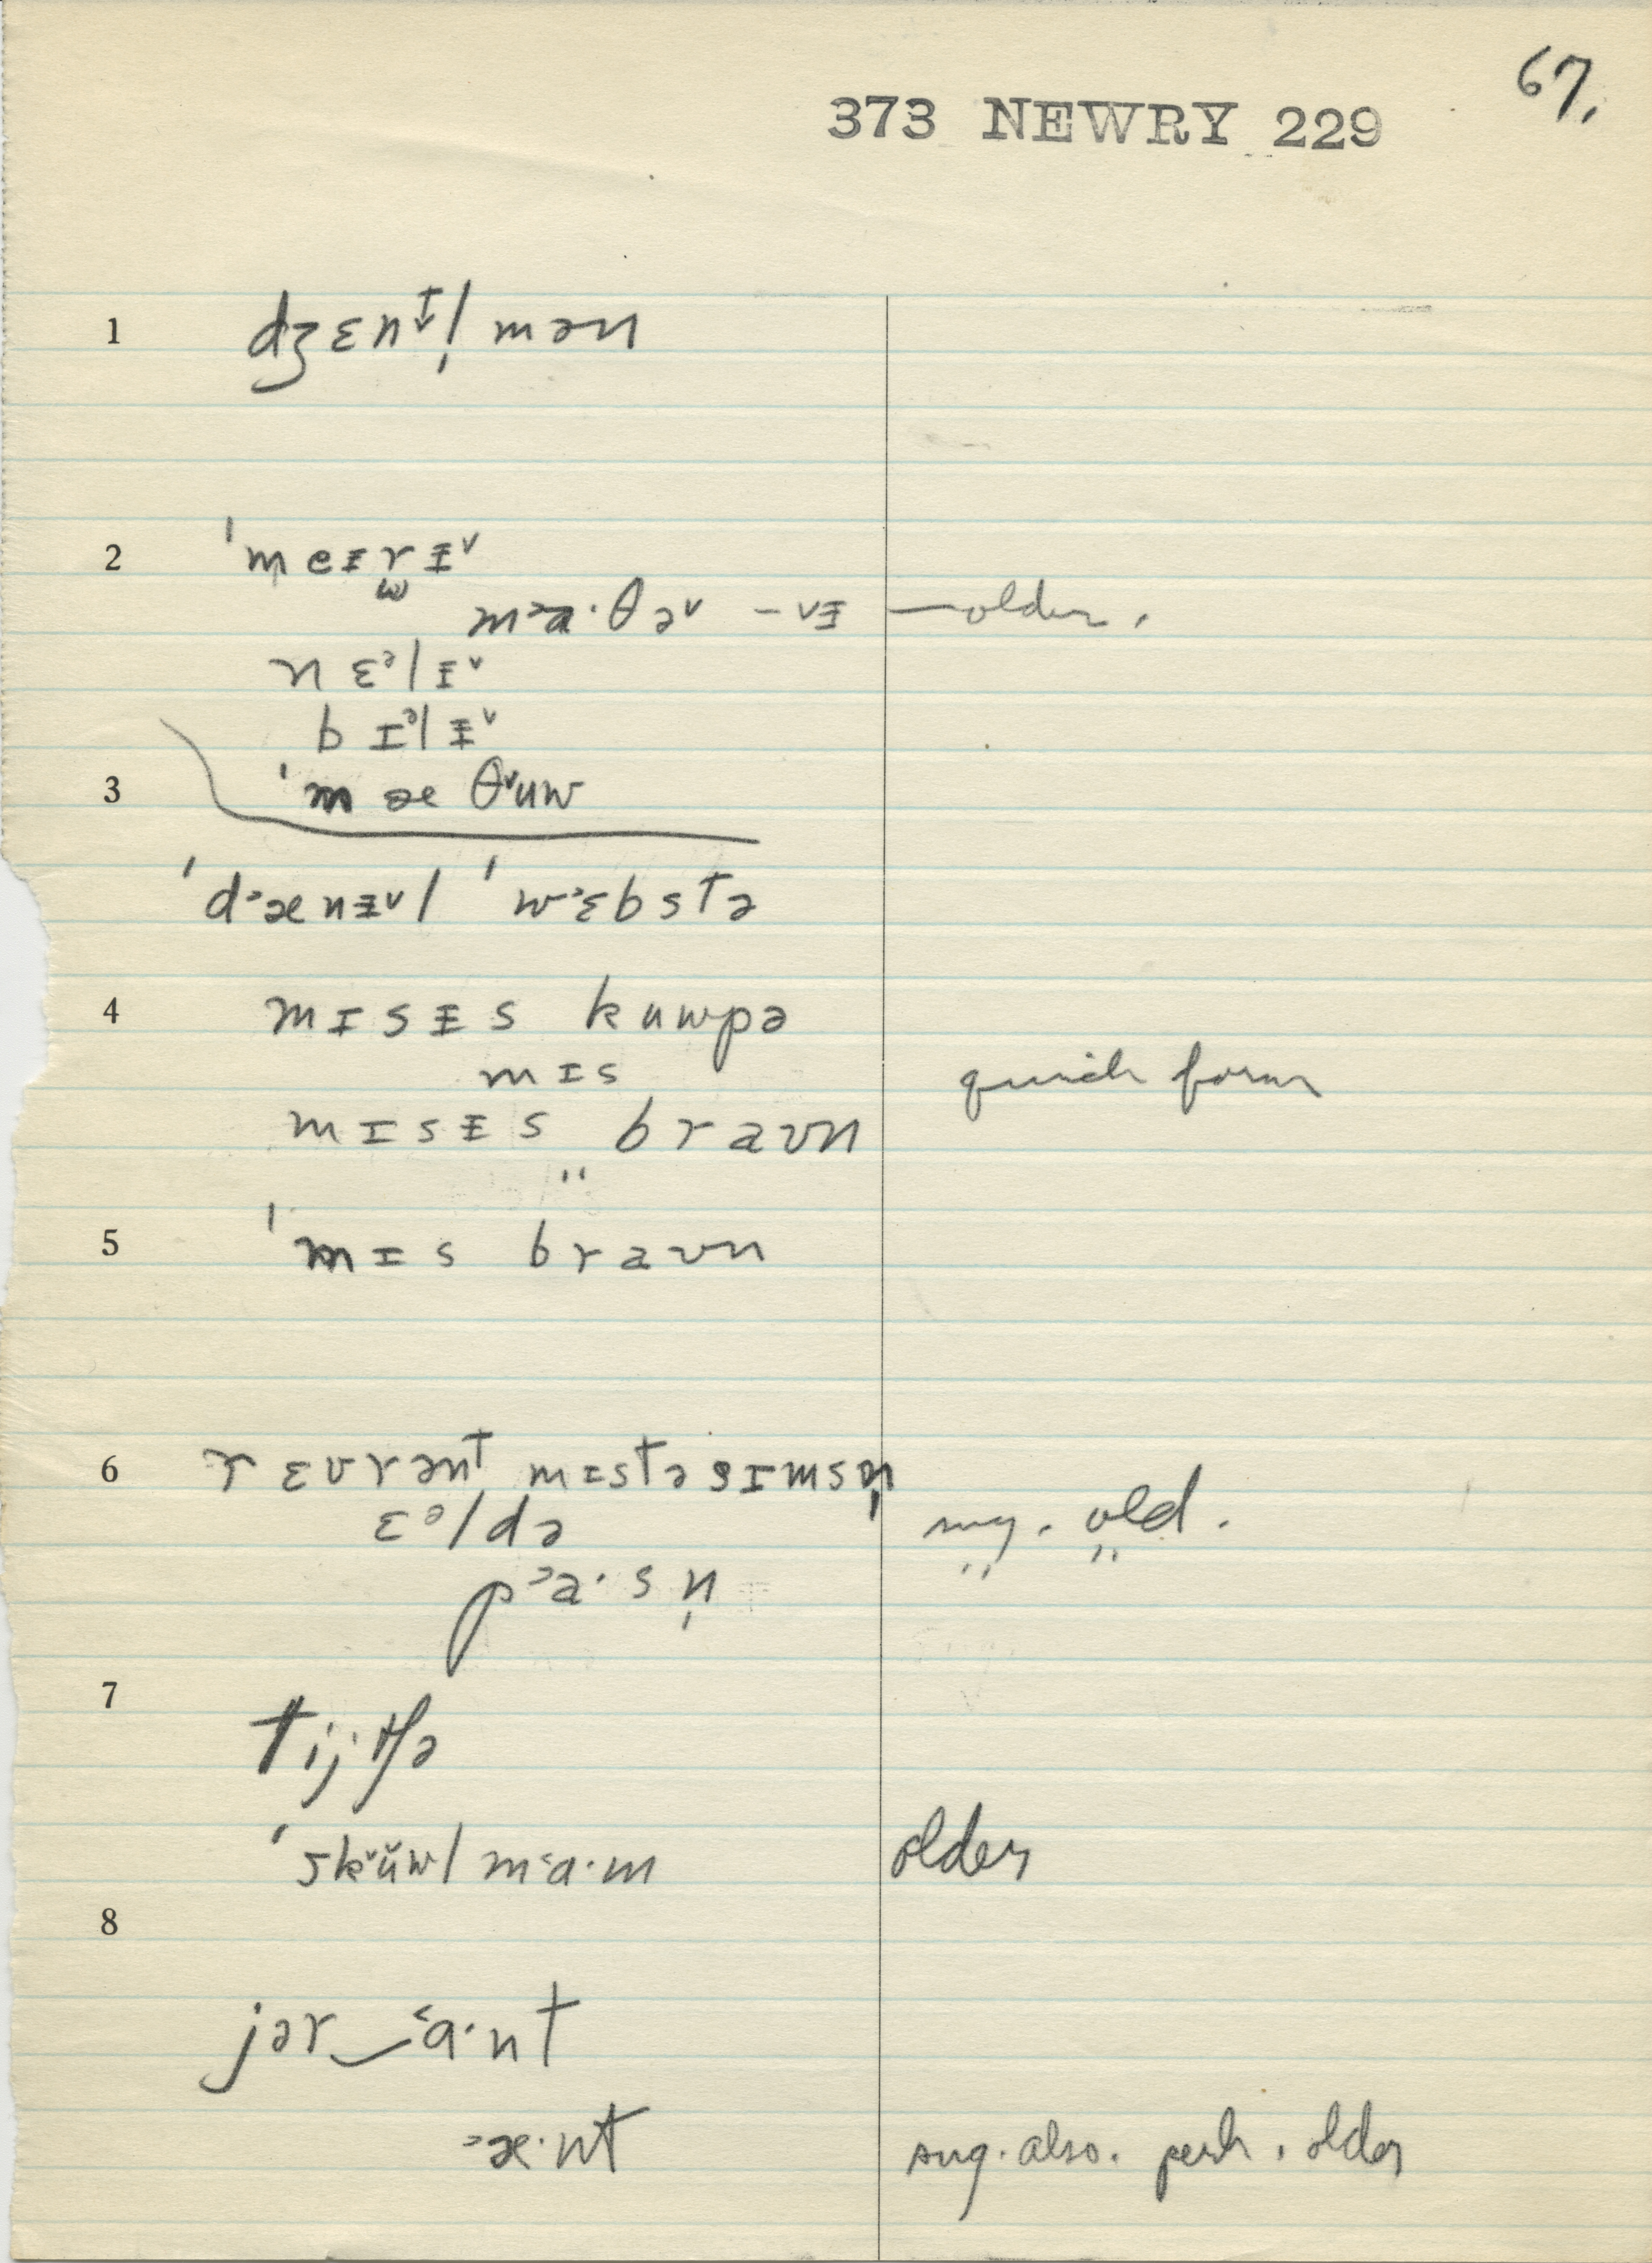 67.
373 NEWRY 229
1 dʒɛnt̬l̩mən
2 ˈmeɪrɨ˅
m˃a·θə˅ –vɨ — older.
nɛᵊlɨ˅
bɪᵊlɨ˅
3 ˈmæθ˅uw
ˈd˃ænɨ˅l ˈw˃ɛbstə
4 mɪsɨs kuwpə
mɪs quick form
mɪsɨs bravn
"
5 ˈmɪs bravn
6 rɛvrənt mɪstə sɪmsn̩
ɛᵊldə sug. old.
p˃a·sn̩ " "
7 tijtʃə
ˈsk˅ŭwlm˂a·m older
8
jər‿˂a·nt
˃æ·nt sug. also. perh. older